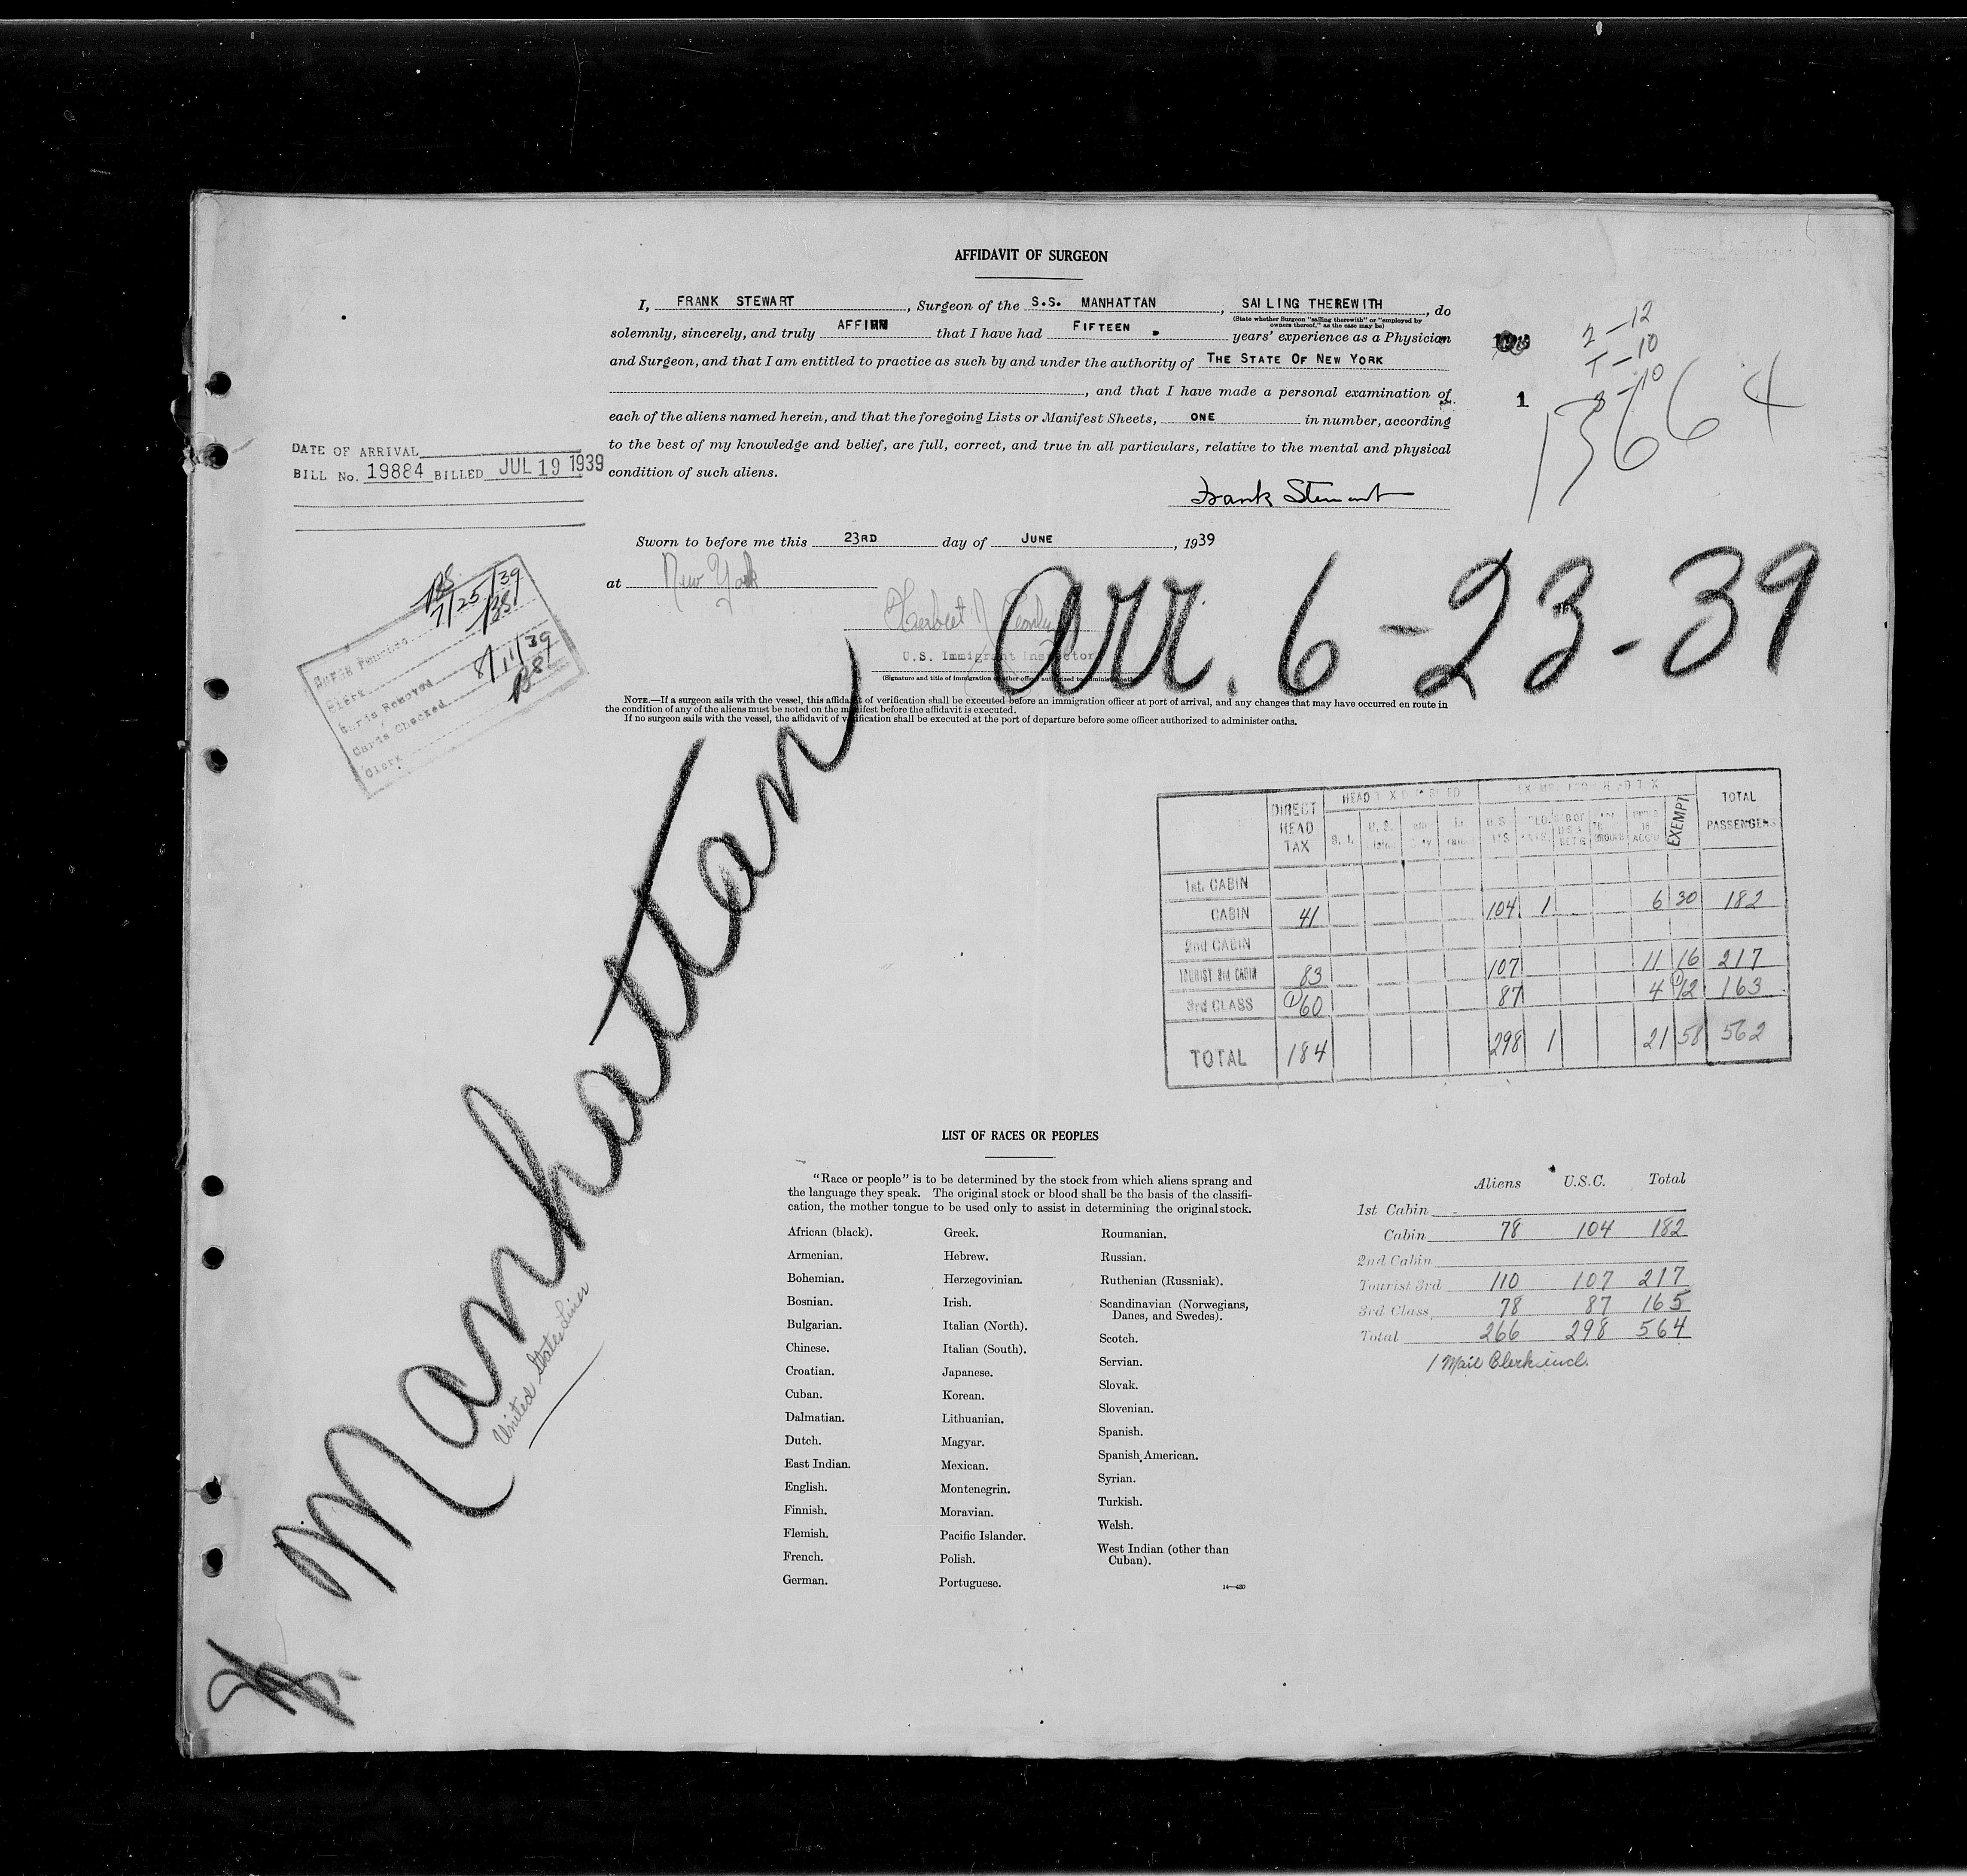 AFFIDAVIT OF SURGEON
I, FRANK STEWART, Surgeon of the S.S. MANHATTAN, SAILING THEREWITH, do
(State whether Surgeon "sailing therewith" or "employed by owners thereof," as the case may be)
solemnly, sincerely, and truly AFFIRM that I have had FIFTEEN years' experience as a Physician
and Surgeon, and that I am entitled to practice as such by and under the authority of THE STATE OF NEW YORK
, and that I have made a personal examination of
each of the aliens named herein, and that the foregoing Lists or Manifest Sheets, ONE in number, according
to the best of my knowledge and belief, are full, correct, and true in all particulars, relative to the mental and physical
condition of such aliens.
Frank Stewart
Sworn to before me this 23RD day of JUNE, 1939
at New York
Herbert J
U.S. Immigrant Inspector
(Signature and title of immigration or other officer authorized to administer oaths)
NOTE.—If a surgeon sails with the vessel, this affidavit of verification shall be executed before an immigration officer at port of arrival, and any changes that may have occurred en route in
the condition of any of the aliens must be noted on the manifest before the affidavit is executed.
If no surgeon sails with the vessel, the affidavit of verification shall be executed at the port of departure before some officer authorized to administer oaths.
1
2-12
1-10
3-10
13664
DATE OF ARRIVAL
BILL No. 19884 BILLED JUL 19 1939
7/25/39
Cards Removed 8/11/39
Cards Checked
Clerk
arr. 6-23-39
Manhattan
United States Lines
DIRECT HEAD TAX
EXEMPT
TOTAL PASSENGERS
1st. CABIN
CABIN 41 104 1 6 30 182
2nd CABIN
TOURIST 3rd CABIN 83 107 11 16 217
3rd CLASS (1)60 87 4 (1)12 163
TOTAL 184 298 1 21 58 562
LIST OF RACES OR PEOPLES
"Race or people" is to be determined by the stock from which aliens sprang and
the language they speak. The original stock or blood shall be the basis of the classifi-
cation, the mother tongue to be used only to assist in determining the original stock.
African (black).
Armenian.
Bohemian.
Bosnian.
Bulgarian.
Chinese.
Croatian.
Cuban.
Dalmatian.
Dutch.
East Indian.
English.
Finnish.
Flemish.
French.
German.
Greek.
Hebrew.
Herzegovinian.
Irish.
Italian (North).
Italian (South).
Japanese.
Korean.
Lithuanian.
Magyar.
Mexican.
Montenegrin.
Moravian.
Pacific Islander.
Polish.
Portuguese.
Roumanian.
Russian.
Ruthenian (Russniak).
Scandinavian (Norwegians,
Danes, and Swedes).
Scotch.
Servian.
Slovak.
Slovenian.
Spanish.
Spanish American.
Syrian.
Turkish.
Welsh.
West Indian (other than
Cuban).
14—430
Aliens U.S.C. Total
1st Cabin
Cabin 78 104 182
2nd Cabin
Tourist 3rd 110 107 217
3rd Class 78 87 165
Total 266 298 564
1 Mail Clerk incl.